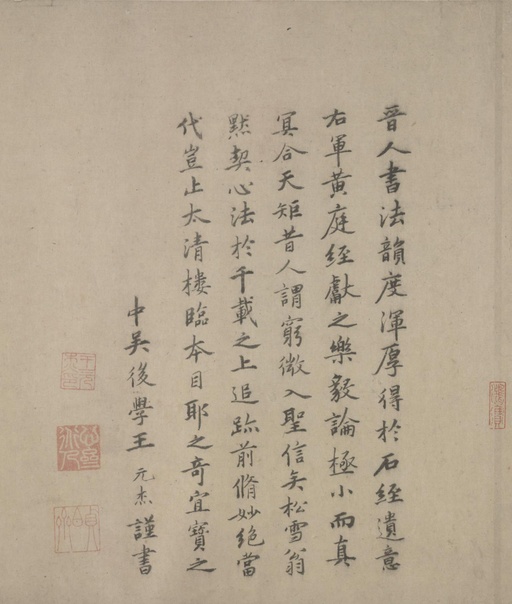 晉人書法韻度渾厚得於石經遺意
右軍黃庭經獻之樂毅論極小而真
冥合天矩昔人謂窮微入聖信矣松雪翁
默契心法於千載之上追跡前脩妙絕當
代豈止太清樓臨本目耶之奇宜寶之
中吳後學王元杰謹書